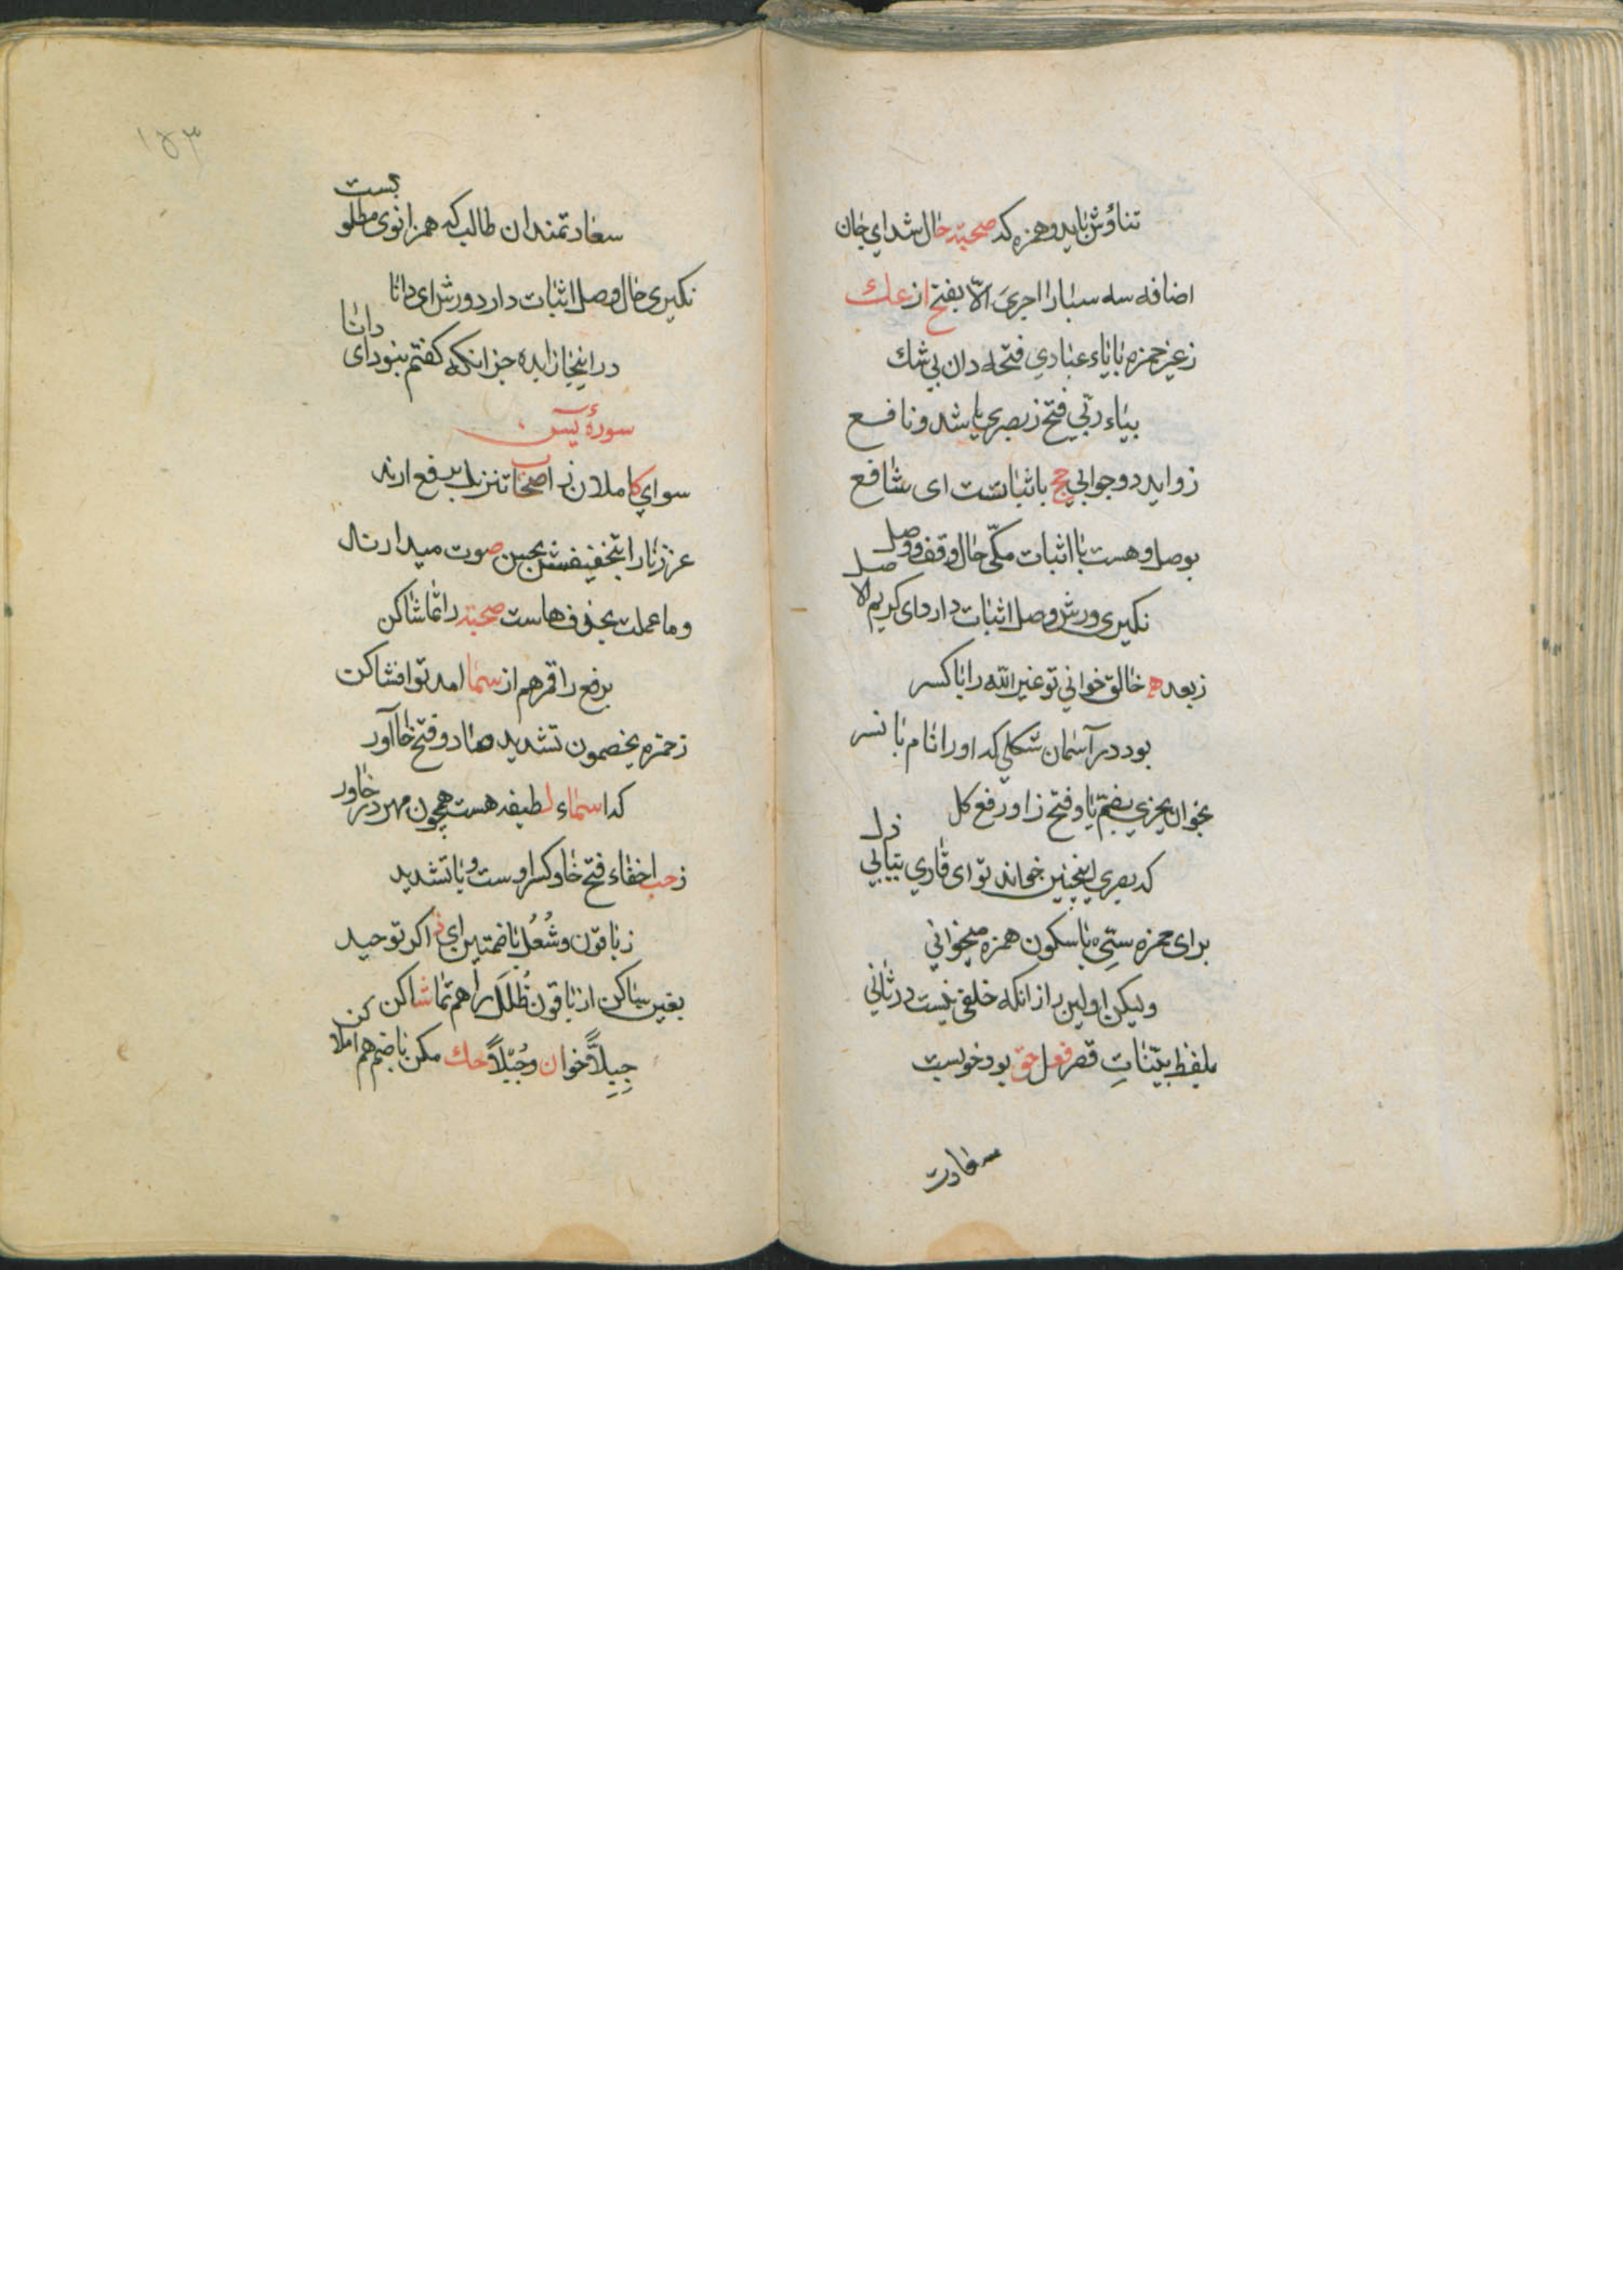 تناؤش باید و همزه که صحبته حال شد ای جان
اضافه سه سبا را اجری الّا بفتح از عك
ز غیر حمزه با یاء عبادی فتحه دان بی شك
بیاء ربّی فتح ز بصری یا شد و نافع
زواید دو جوابی حج باثباتست ای شافع
بوصل و هست با اثبات مکّی حال وقف و وصل
نکیری ورش وصل اثبات دارد ای کریم الاصل
ز بعد هم خالق خوانی تو غیر الله را با کسر
بود در آسمان شکلی که او را نام با نسر
بخوان یجزی بضمّ یا و فتح زا و رفع کل
که بصری اینچنین خواند تو ای قاری بیابی ذل
برای حمزه سیّیء با سکون همزه میخوانی
ولیکن اولین را زانکه خلفی نیست در ثانی
بلفظ بیّناتٍ قصر فعل حق بود خوبست
سعادت
۱۵۳
سعادتمندان طالب که همزانوی مطلوبست
نکیری حال وصل اثبات دارد ورش ای دانا
در اینجا زایده جز انکه کفتم نبود ای دانا
سورهٔ یٓس
سوای کاملان ز اصحاب تنزیل برفع ارند
عززنا را بتخفیفش بجین صوت میدارند
وما عملت بحذف هاست صحبته را تماشا کن
برفع را قمر هم از سما امد تو افشا کن
ز حمزه یخصمون تشدید صاد و فتح خا آور
که اسماء لطیفه هست همچون مهر در خاور
ز حب اخفاء فتح خا و کسر اوست و با تشدید
ز باقون و شُغُل با ضمتین ای ذاکر توحید
بغین ساکن از باقون ظُلَل را هم تماشا کن
جِبِلّاً خوان و جُبْلاً حك مکن با ضم هم املا کن